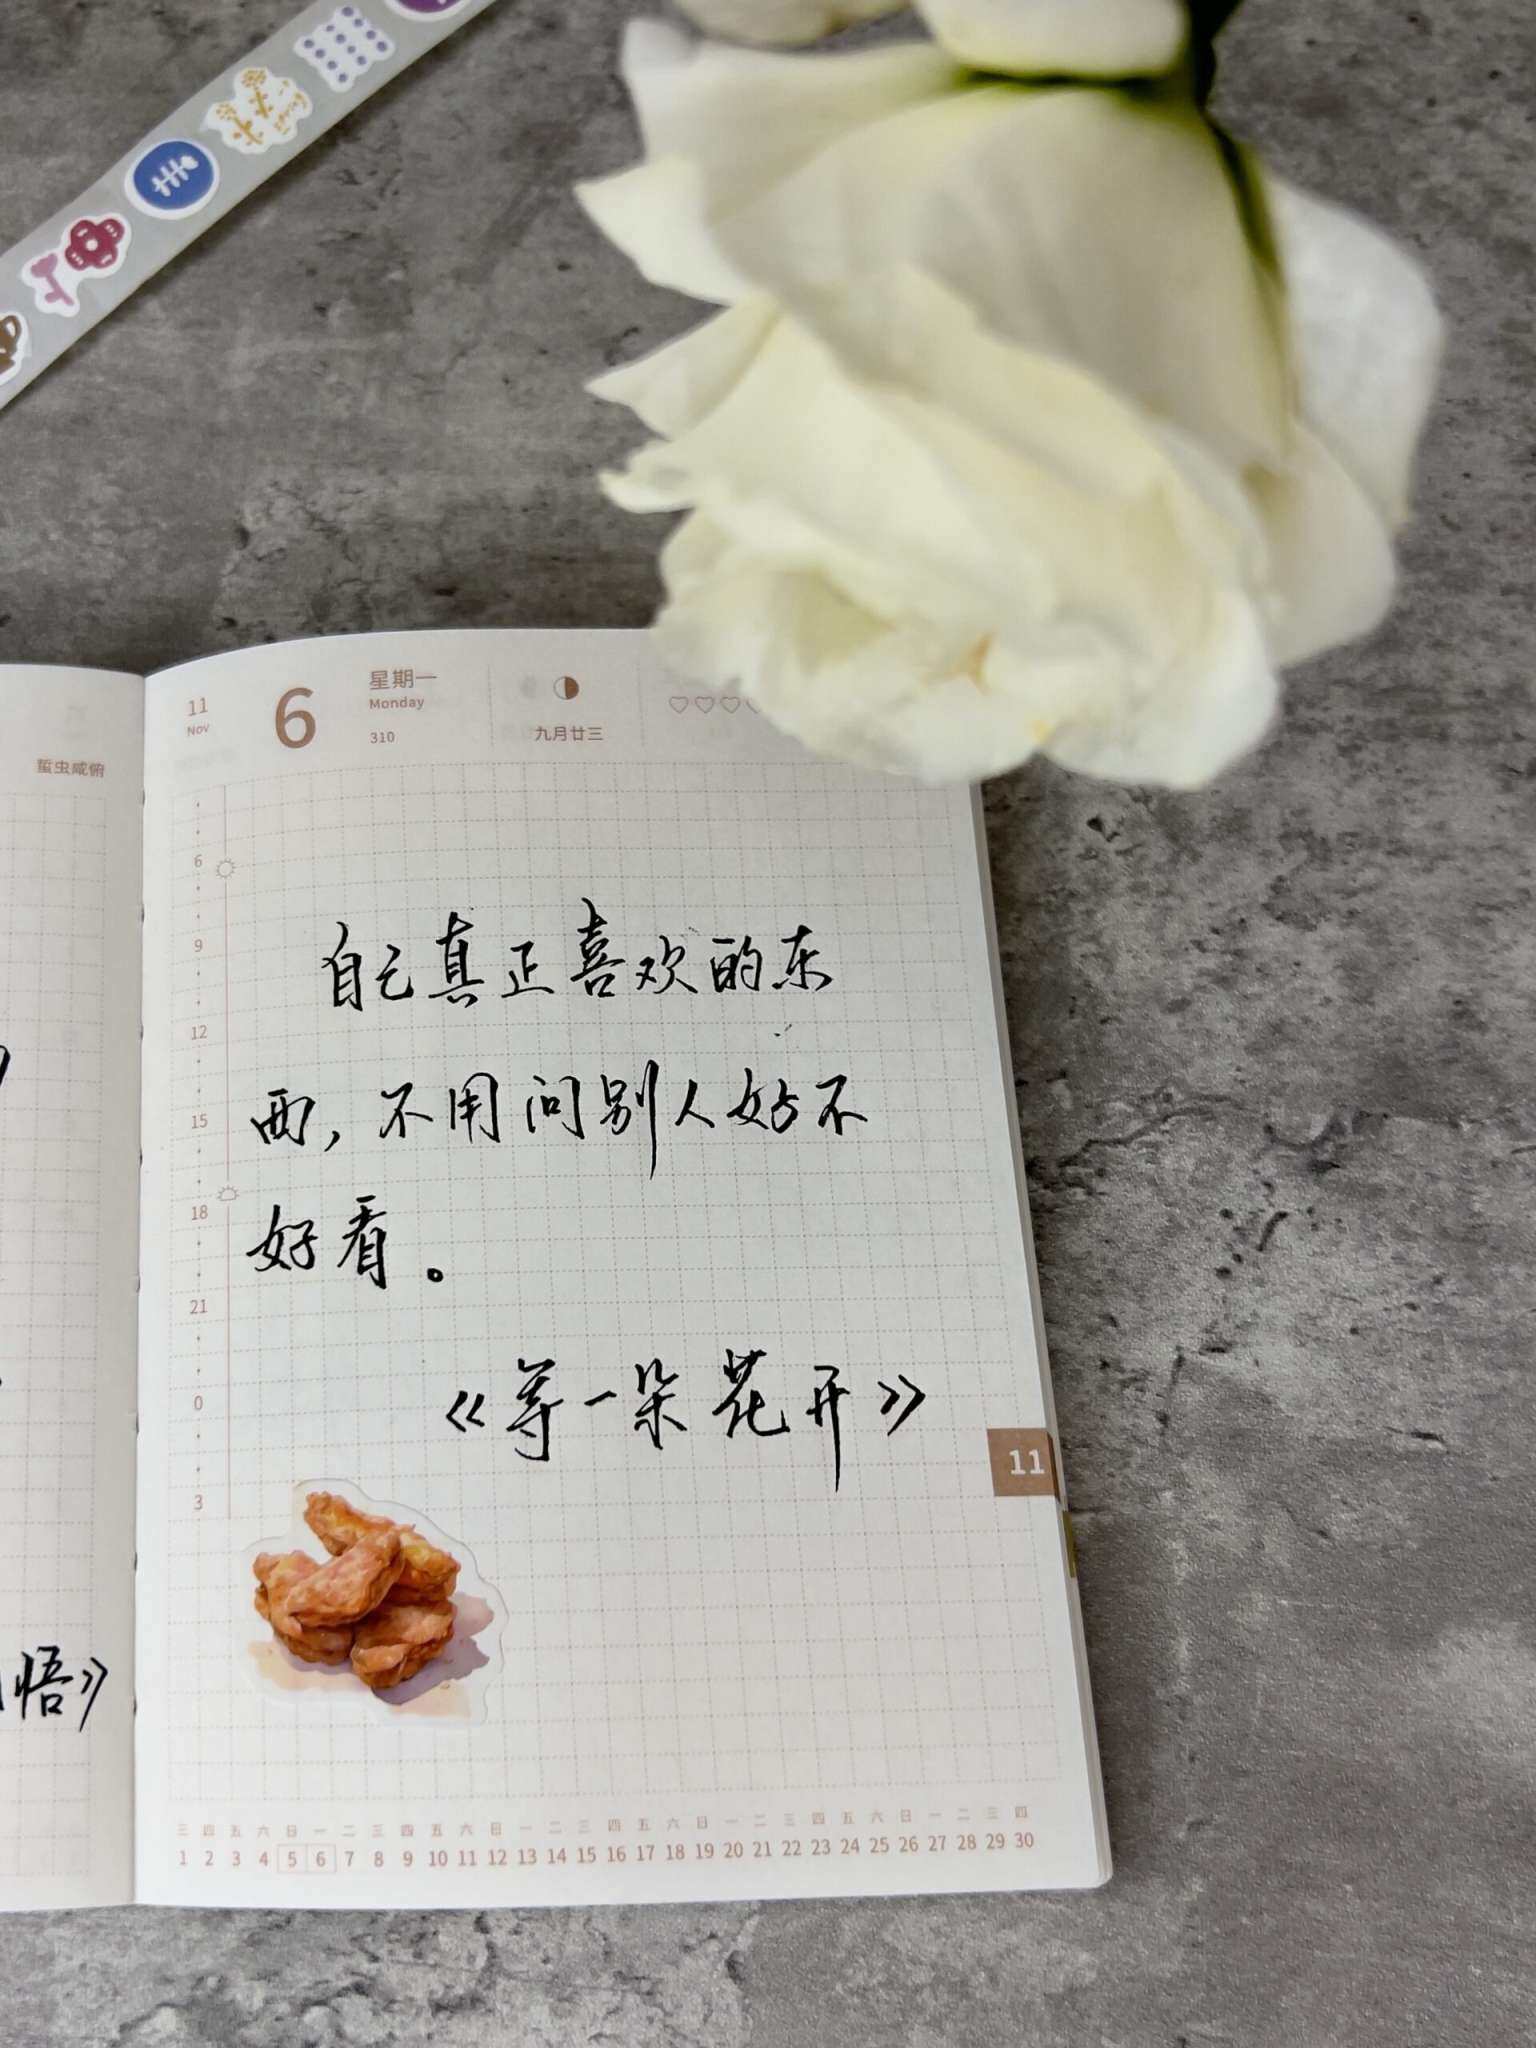 蜇虫咸俯
悟》
11
Nov
6
星期一
Monday
310
九月廿三
6
9
12
15
18
21
0
3
自己真正喜欢的东
西,不用问别人好不
好看。
《等一朵花开》
11
三 四 五 六 日 一 二 三 四 五 六 日 一 二 三 四 五 六 日 一 二 三 四 五 六 日 一 二 三 四
1 2 3 4 5 6 7 8 9 10 11 12 13 14 15 16 17 18 19 20 21 22 23 24 25 26 27 28 29 30